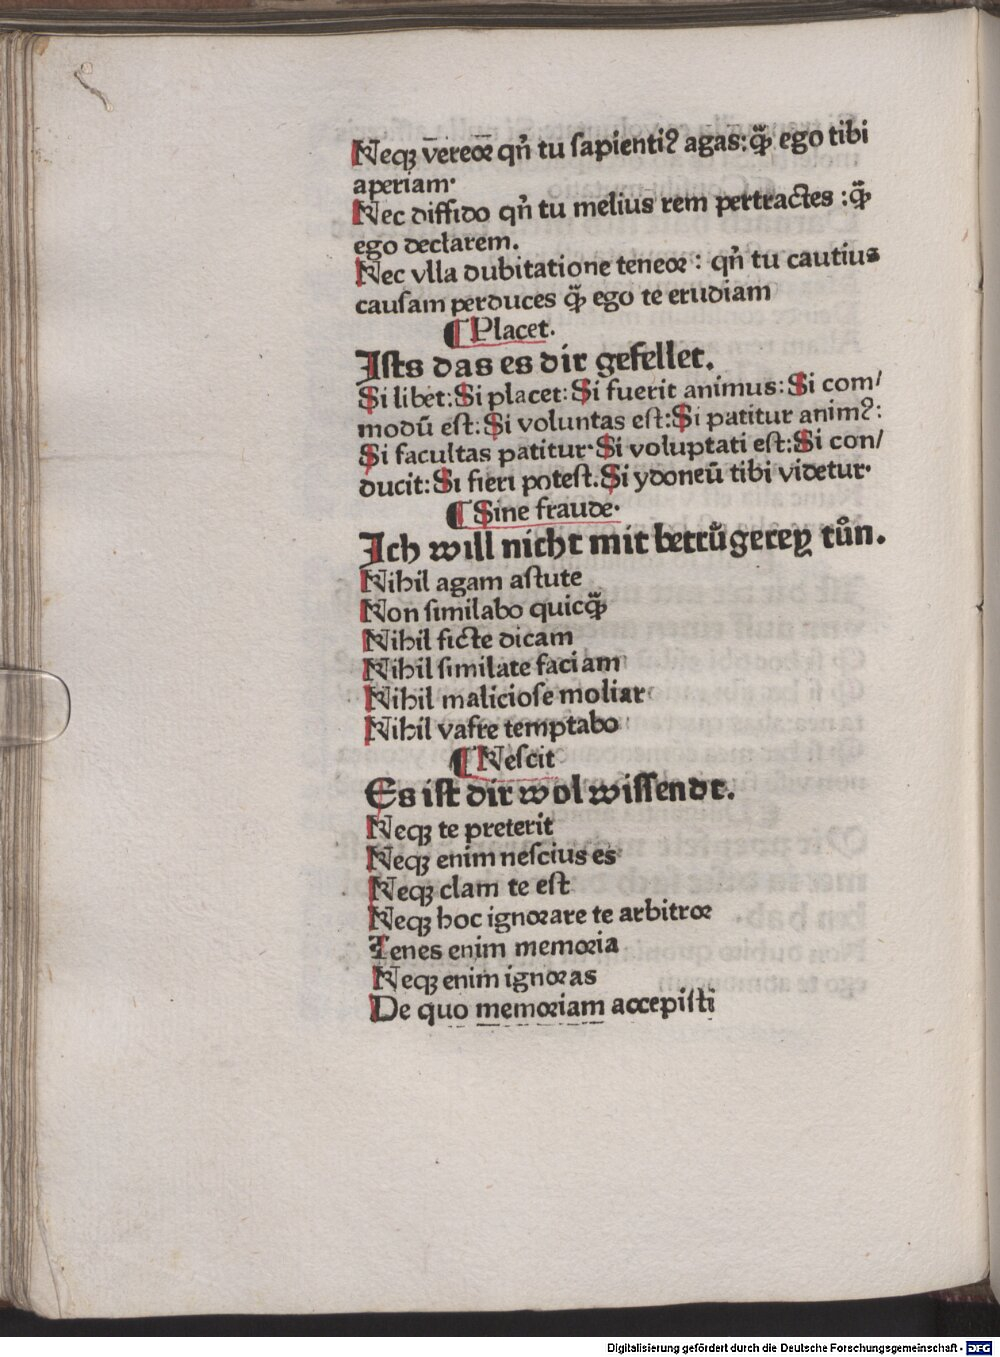 Neqꝫ vereoꝛ̄ qn̄ tu ſapientiꝰ agas:qͣ̄ꝫ ego tibi
aperiam·
Nec diffido qn̄ tu melius rem pertractes :qͣ̄ꝫ
ego declarem.
Nec vlla dubitatione teneoꝛ : qn̄ tu cautius
cauſam perduces qͣ̄ꝫ ego te erudiam
¶ Placet.
Iſts das es dir gefellet.
Si libet:Si placet:Si fuerit animus:Si com/
modū eſt:Si voluntas eſt:Si patitur animꝰ:
Si facultas patitur·Si voluptati eſt:Si con/
ducit:Si fieri poteſt.Si ydoneū tibi videtur·
¶ Sine fraude·
Ich will nicht mit betrůgerey tůn.
Nihil agam aſtute
Non ſimilabo quicqͣ̄ꝫ
Nihil ficte dicam
Nihil ſimilate faciam
Nihil malicioſe moliar
Nihil vafre temptabo
¶ Neſcit
Es iſt dir wol wiſſendt.
Neqꝫ te preterit
Neqꝫ enim neſcius es·
Neqꝫ clam te eſt
Neqꝫ hoc ignoꝛare te arbitroꝛ
Tenes enim memoꝛia
Neqꝫ enim ignoꝛas
De quo memoꝛiam accepiſti
Digitalisierung gefördert durch die Deutsche Forschungsgemeinschaft - DFG